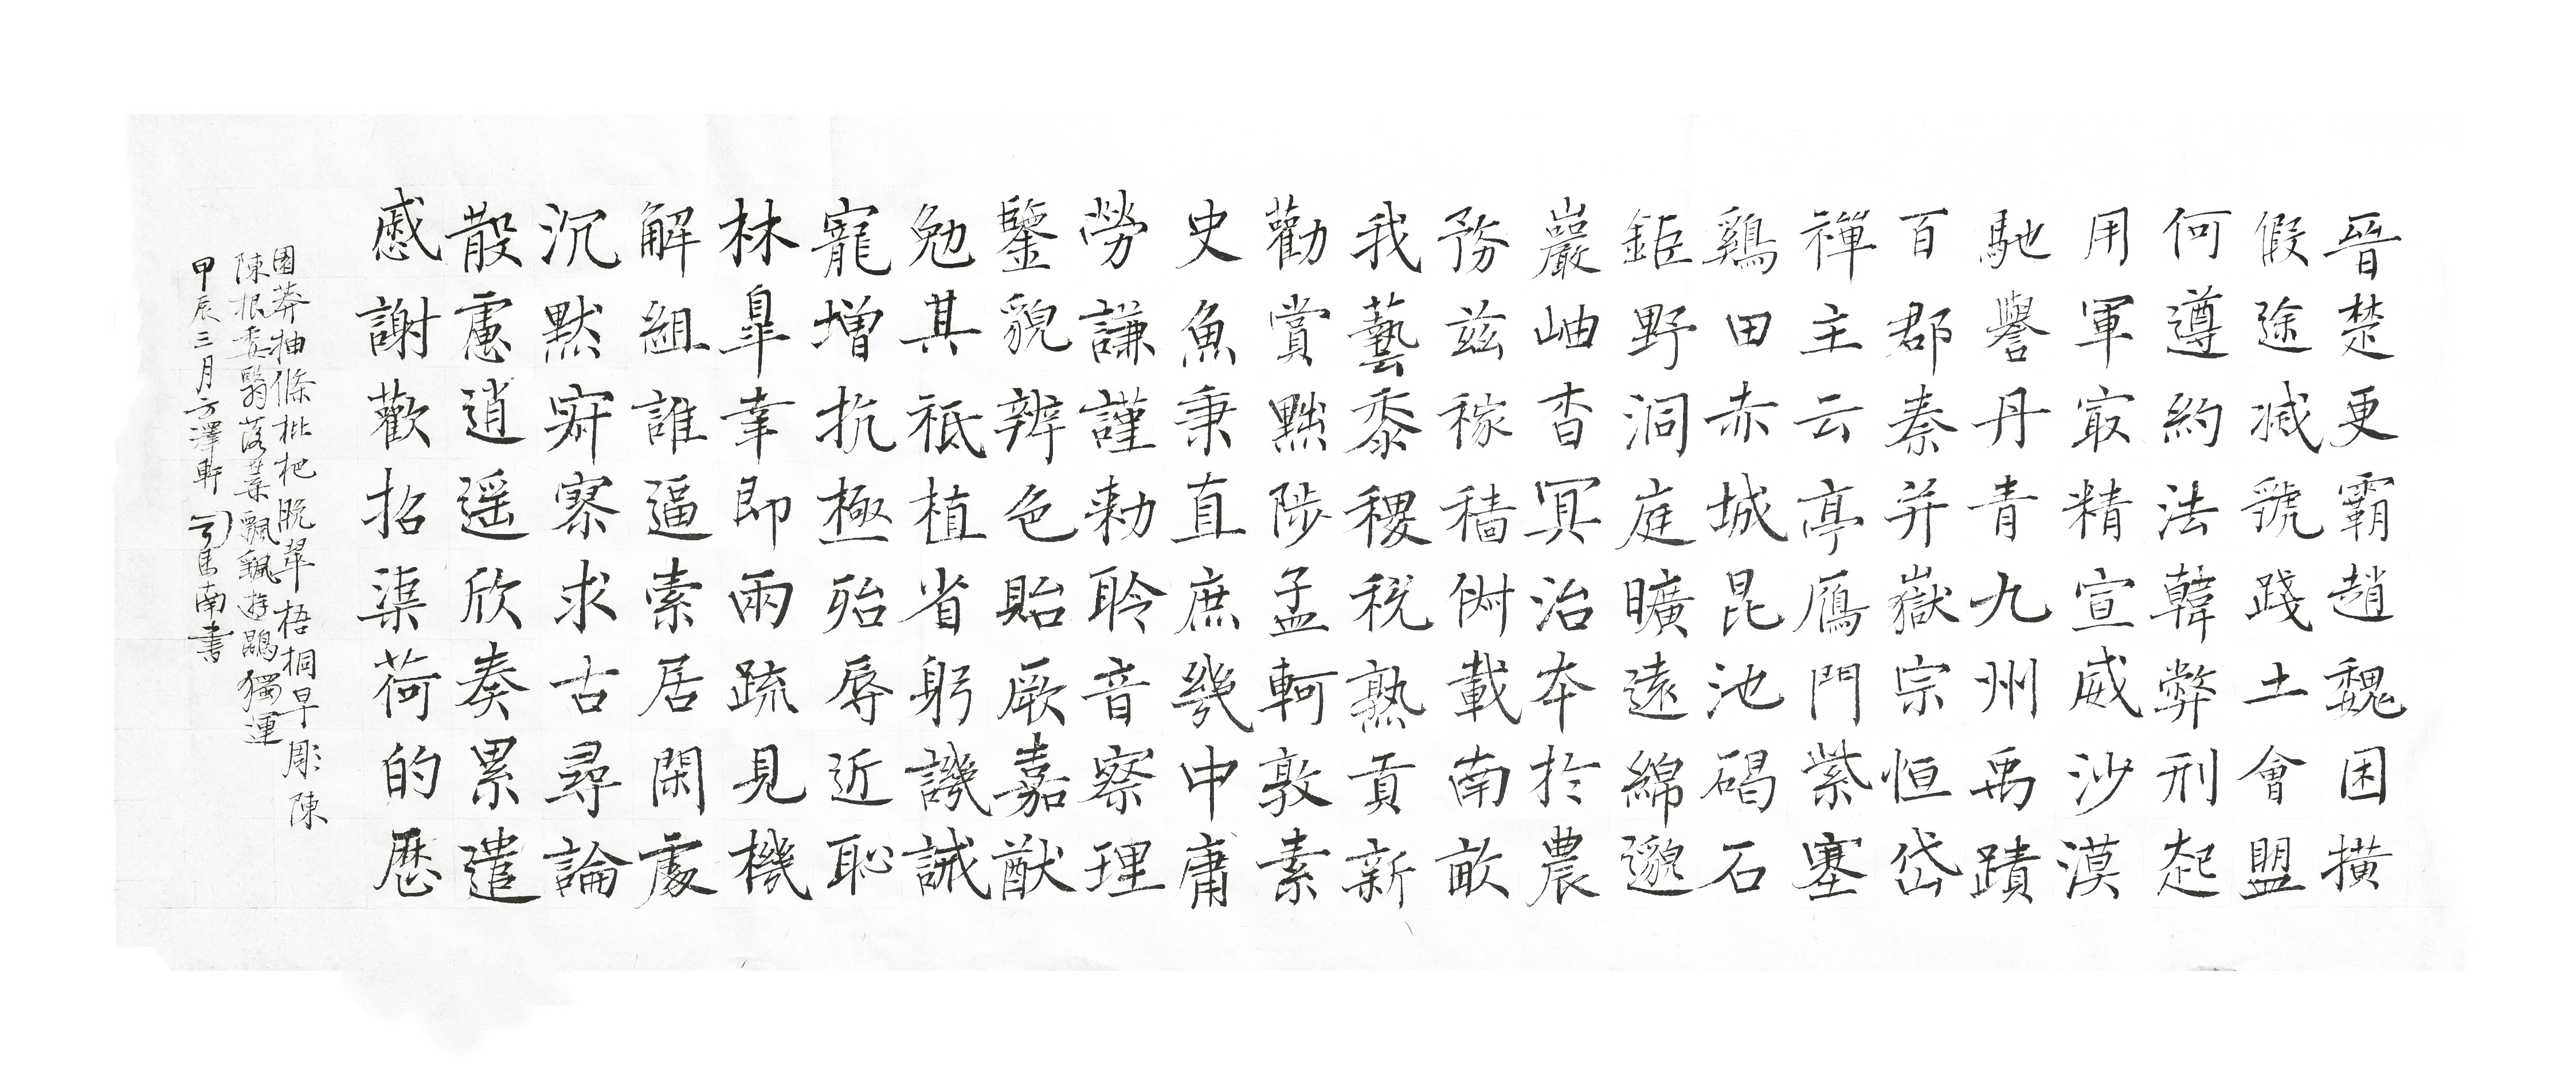 晉楚更霸趙魏困橫
假途滅虢踐土會盟
何遵約法韓弊刑起
用軍宼精宣威沙漠
馳譽丹青九州禹蹟
百郡秦并嶽宗恒岱
禪主云亭鴈門紫塞
鷄田赤城昆池碣石
鉅野洞庭曠遠綿邈
巖岫杳冥治本於農
務茲稼穡俶載南畝
我藝黍稷稅熟貢新
勸賞黜陟孟軻敦素
史魚秉直庶幾中庸
勞謙謹勑聆音察理
鑒貌辨色貽厥嘉猷
勉其祗植省躬譏誡
寵增抗極殆辱近恥
林皐幸即兩疏見機
解組誰逼索居閑處
沉默寂寥求古尋論
散慮逍遥欣奏累遣
慼謝歡招渠荷的歷
園莽抽條枇杷脫翠梧桐早彫陳
陳根委翳落葉飄颻遊鵾獨運
甲辰三月方澤軒司馬南書